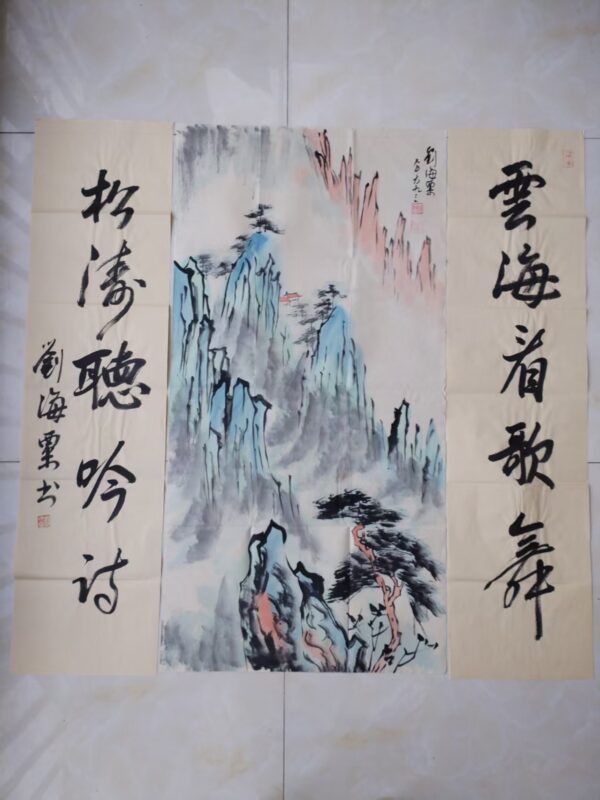 雲海看歌舞
劉海粟
松濤聽吟诗
劉海粟书